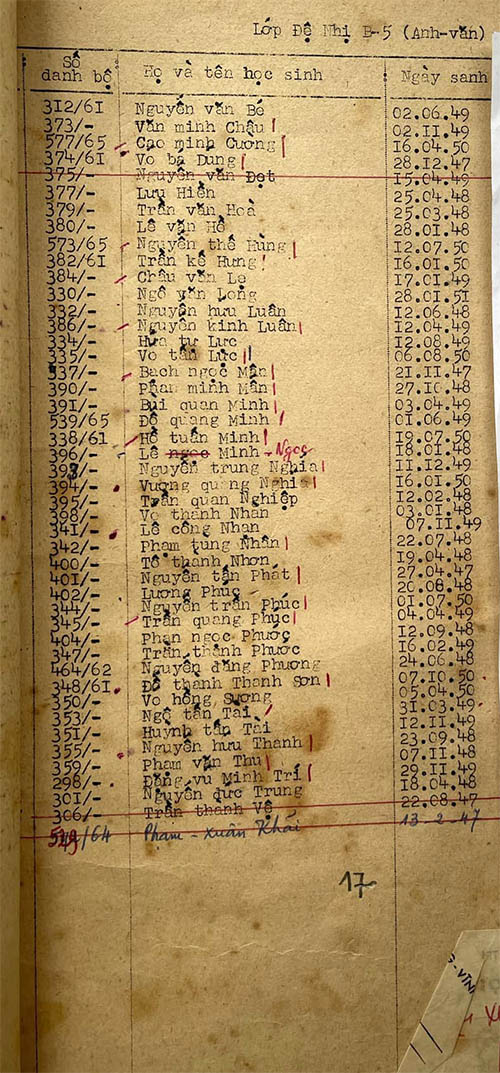 Lớp Đệ Nhị B-5 (Anh-văn)
Số danh bộ Họ và tên học sinh Ngày sanh
312/61 Nguyễn văn Bé 02.06.49
373/- Văn minh Châu 02.11.49
577/65 Cao minh Cương 16.04.50
374/61 Vo bá Dung 28.12.47
375/- Nguyễn văn Đọt 15.04.49
377/- Lưu Hiền 25.04.48
379/- Trần văn Hoà 25.03.48
380/- Lê văn Hổ 28.01.48
573/65 Nguyễn thế Hùng 12.07.50
382/61 Trần kế Hưng 16.01.50
384/- Châu văn Lạ 17.01.49
330/- Ngô văn Long 28.01.51
332/- Nguyễn hưu Luân 12.06.48
386/- Nguyễn kinh Luân 12.04.49
334/- Hứa tự Lực 12.08.49
335/- Vo tấn Lực 06.08.50
337/- Bạch ngọc Mân 21.11.47
390/- Phan minh Mân 27.10.48
391/- Bùi quan Minh 03.04.49
539/65 Đỗ quang Minh 01.06.49
338/61 Hồ tuấn Minh 19.07.50
396/- Lê ngọc Minh - Ngọc 18.01.48
Nguyễn trung Nghia 11.12.49
394/- Vương quang Nghia 16.01.50
395/- Trần quan Nghiệp 12.02.48
398/- Vo thành Nhan 03.01.48
341/- Lê công Nhan 07.11.49
342/- Phạm tùng Nhân 22.07.48
400/- Tô thành Nhơn 19.04.48
401/- Nguyễn tấn Phát 27.04.47
402/- Lương Phúc 20.08.48
344/- Nguyễn trần Phúc 01.07.50
345/- Trần quang Phúc 04.04.49
404/- Phan ngọc Phước 12.09.48
347/- Trần thành Phước 16.02.49
464/62 Nguyễn đăng Phương 24.06.48
348/61 Đỗ thanh Thanh Sơn 07.10.50
350/- Vo hồng Sương 05.04.50
353/- Ngô tấn Tài 31.03.49
351/- Huỳnh tấn Tài 12.11.49
355/- Nguyễn hưu Thanh 23.09.48
359/- Phạm văn Thu 07.11.48
298/- Đặng vu Minh Trí 29.11.49
301/- Nguyễn đức Trung 18.04.48
306/- Trần thanh Vệ 22.08.47
/64 Phạm - Xuân Khải 13-2-47
17